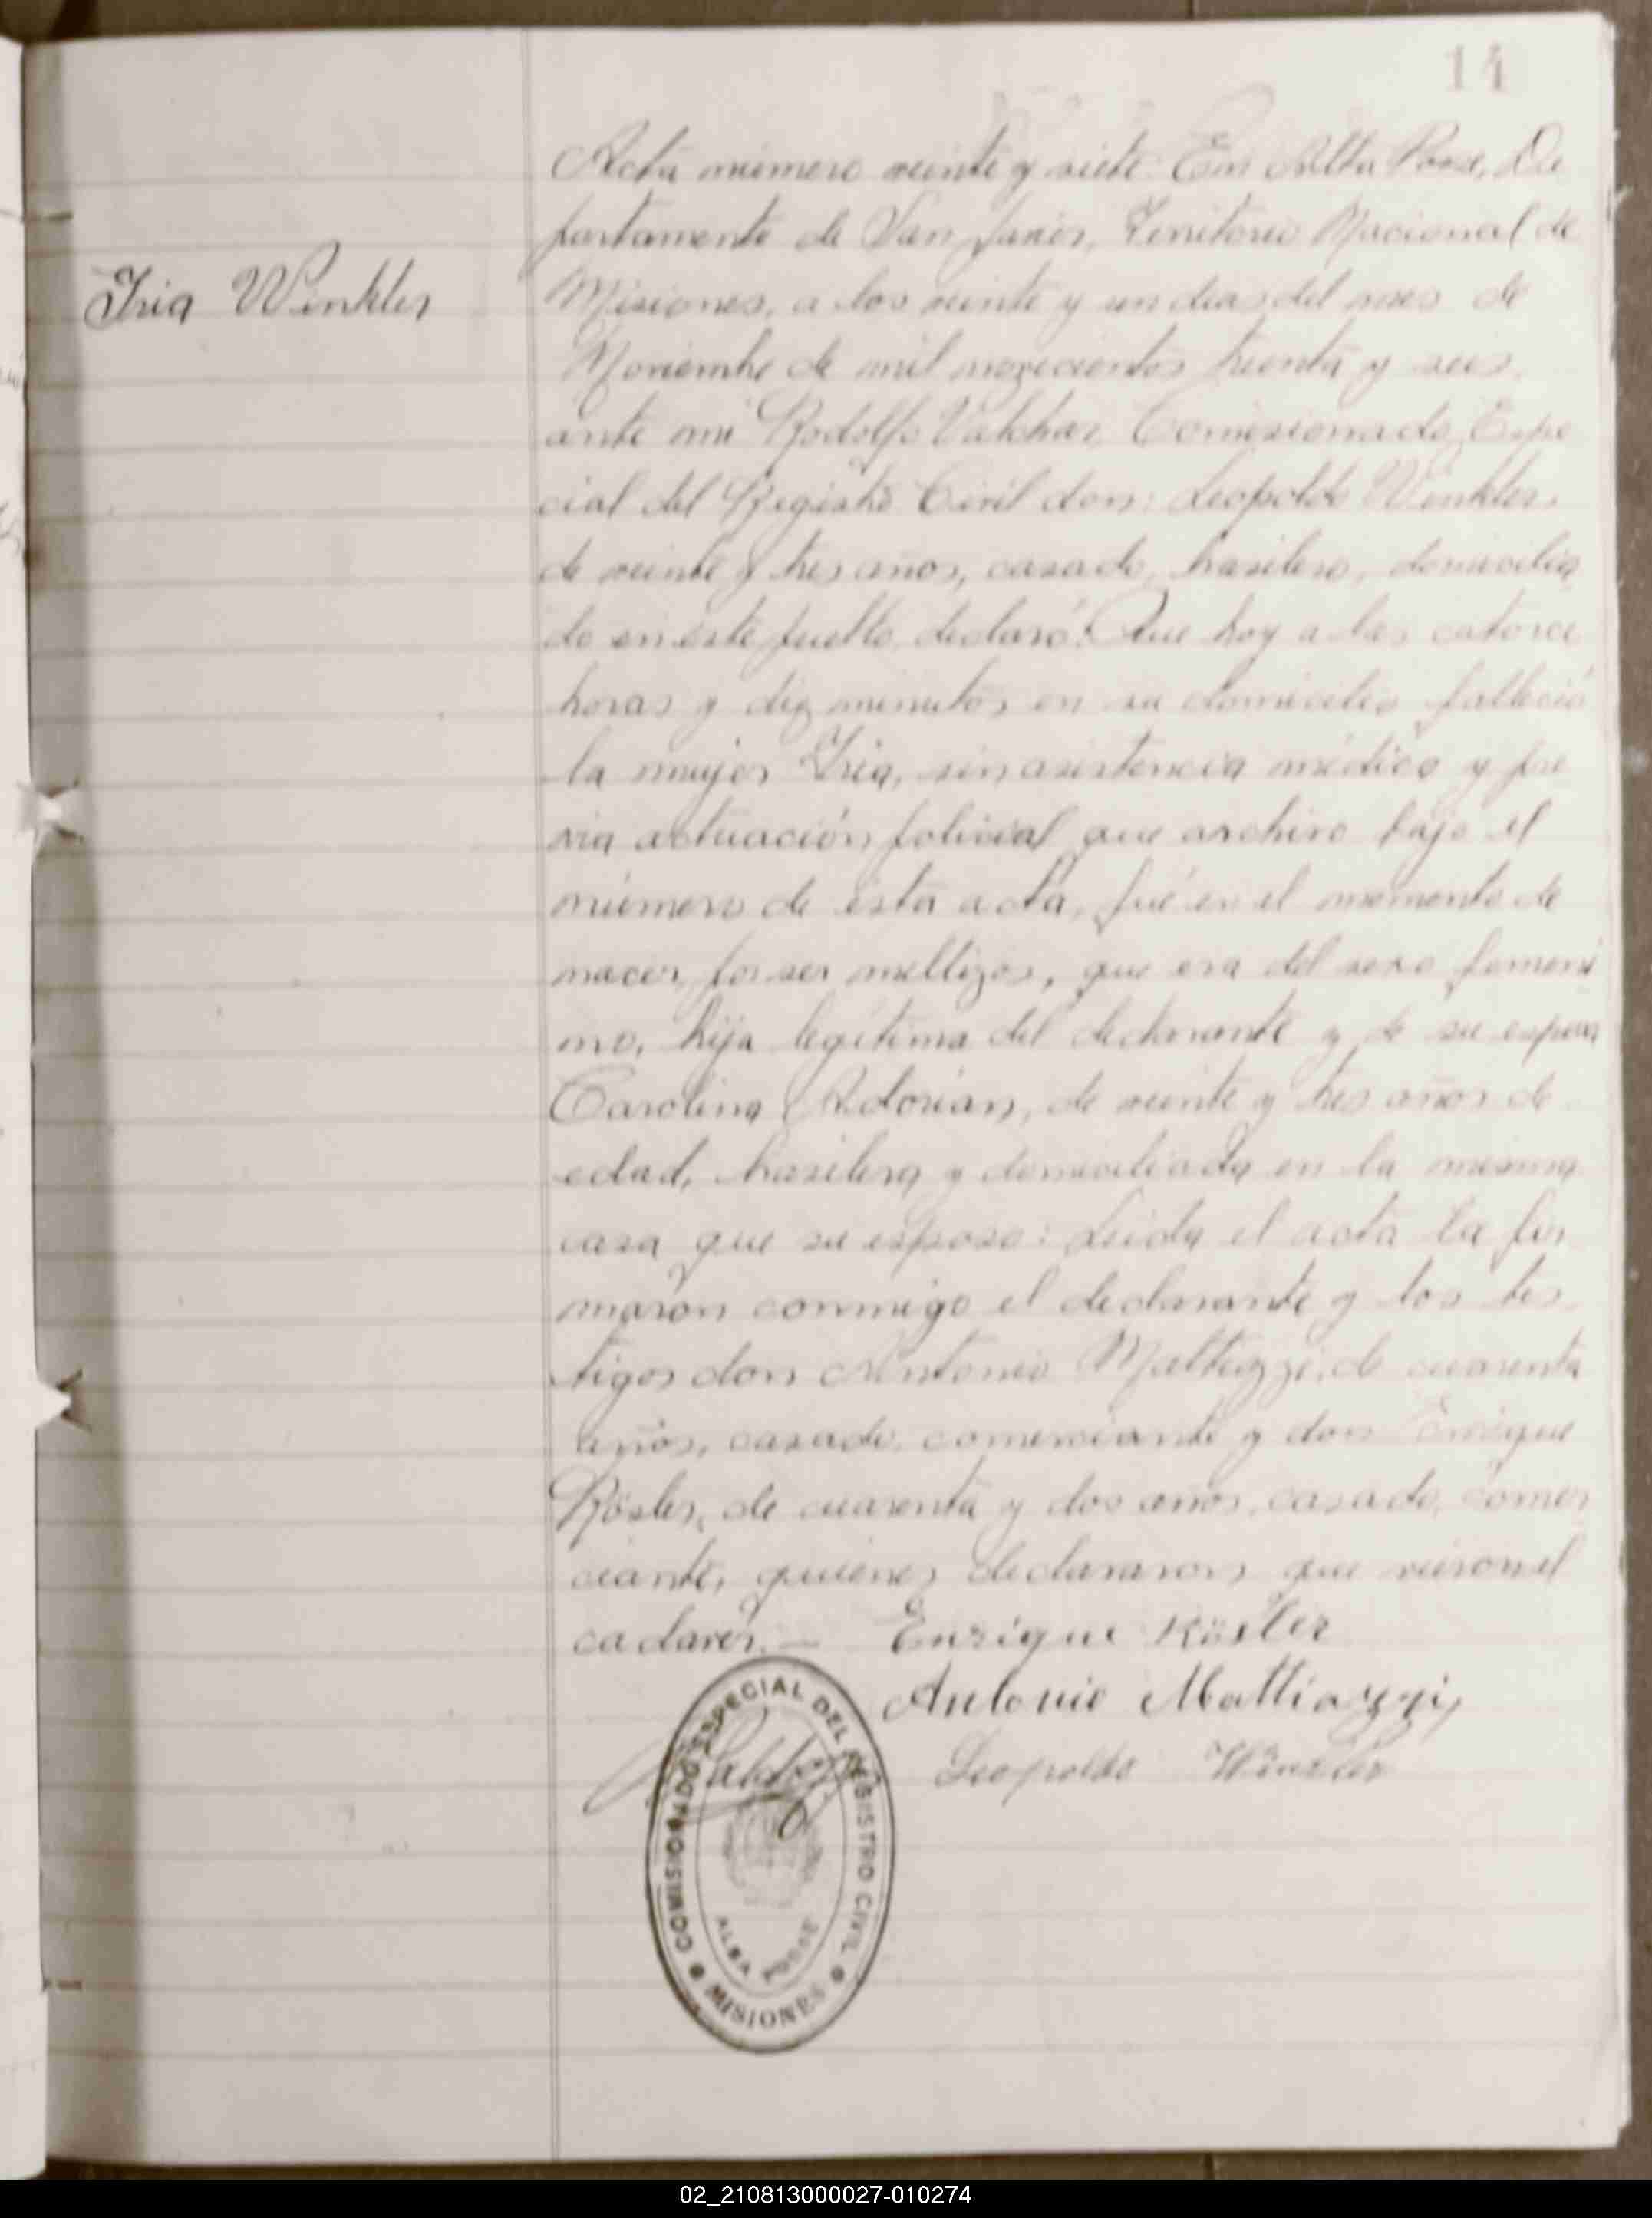 14
Iria Winkler
Acta número veinte y siete: En Alba Posse, De
partamento de San Javier, Territorio Nacional de
Misiones, a los veinte y un dias del mes de
Noviembre de mil novecientos treinta y seis,
ante mi Rodolfo Comisionado Espe
cial del Registro Civil don: Leopoldo Winkler,
de veinte y tres años, casado, brasilero, domicilia
do en éste pueblo, declaró: Que hoy a las catorce
horas y diez minutos en su domicilio falleció
la mujer Iria, sin asistencia médica y pre
via actuación policial que archivo bajo el
número de ésta acta, fué en el momento de
nacer, por ser mellizos, que era del sexo femeni
no, hija legítima del declarante y de su esposa
Carolina Adorian, de veinte y tres años de
edad, brasilera y domiciliada en la misma
casa que su esposo: Leida el acta la fir
maron conmigo el declarante y los tes
tigos don Antonio Mattiazzi, de cuarenta
años, casado, comerciante y don Enrique
Rösler, de cuarenta y dos años, casado, comer
ciante, quienes declararon que vieron el
cadaver. — Enrique Rösler
Antonio Mattiazzi,
Leopoldo Winkler
COMISIONADO ESPECIAL DEL REGISTRO CIVIL
ALBA POSSE
MISIONES
02_210813000027-010274